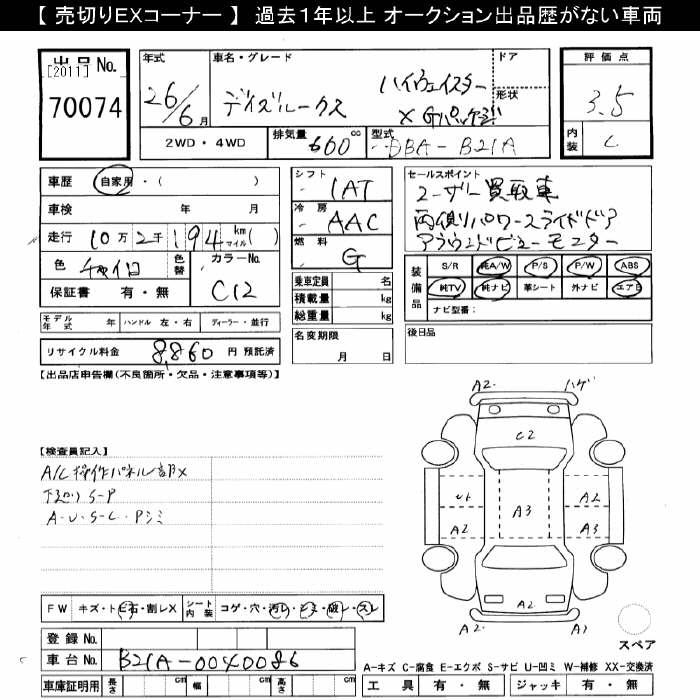 【 売切りEXコーナー 】 過去１年以上 オークション出品歴がない車両
出品 No.
[2011]
70074
年式
26/6月
車名・グレード
デイズルークス
ハイウェイスター
X Gパッケージ
ドア
形状
評価点
3.5
内装
C
2WD・4WD
排気量
660 cc
型式
DBA-B21A
車歴
自家用・( )
車検 年 月
走行 10万2千194 km マイル( )
色
茶
色替
カラーNo.
C12
保証書 有・無
シフト
IAT
冷房
AAC
燃料
G
乗車定員 名
積載量 kg
総重量 kg
セールスポイント
ユーザー買取車
両側パワースライドドア
アラウンドビューモニター
装備品
S/R 純A/W P/S P/W ABS
純TV 純ナビ 革シート 外ナビ エアB
ナビ型番:
モデル年式 年 ハンドル 左・右 ディーラー・並行
リサイクル料金 8,860 円 預託済
名変期限
月 日
後日品
【出品店申告欄(不良箇所・欠品・注意事項等)】
【検査員記入】
A/C操作パネル部X
下廻り S-P
A・U・S-C・Pシミ
A2 ハゲ
C2
A2
A3
A2 A3
A2
A2 A1
スペア
FW キズ・トビ石・割レX シート内装 コゲ・穴・汚レ・シミ・破レ・スレ
登録 No.
車台 No. B21A-0040086
車庫証明用 長さ cm 幅 cm 高さ cm
A-キズ C-腐食 E-エクボ S-サビ U-凹ミ W-補修 XX-交換済
工具 有・無 ジャッキ 有・無